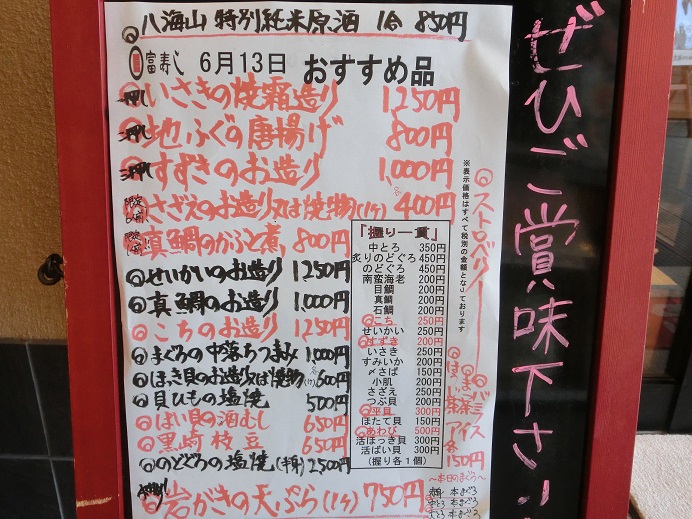 八海山 特別純米原酒 1合 850円
富寿し 6月13日 おすすめ品
一押し いさきの焼霜造り 1,250円
二押し 地ふぐの唐揚げ 800円
三押し すずきのお造り 1,000円
さざえのお造り又は焼物(1ケ) 400円
真鯛のかぶと煮 800円
せいかいのお造り 1250円
真鯛のお造り 1,000円
こちのお造り 1250円
まぐろの中落ちつまみ 1,000円
ほっき貝のお造り又は焼物(1ケ) 600円
貝ひもの塩焼 500円
ばい貝の酒むし 650円
黒崎枝豆 650円
のどぐろの塩焼(半身) 2,500円
岩がきの天ぷら(1ケ) 750円
「握り一貫」
中とろ 350円
炙りのどぐろ 450円
のどぐろ 450円
南蛮海老 200円
目鯛 200円
真鯛 200円
石鯛 200円
こち 250円
せいかい 250円
すずき 200円
いさき 250円
すみいか 200円
〆さば 150円
小肌 200円
さざえ 250円
つぶ貝 200円
平貝 300円
ほたて貝 150円
あわび 500円
活ほっき貝 300円
活ばい貝 300円
(握り各1個)
※表示価格はすべて税別の金額となしております
ストロベリー
バニラ
まっ茶
ほうじ茶
アイス
各150円
〜本日のまぐろ〜
赤身 本まぐろ
中とろ 本まぐろ
大とろ 本まぐろ
ぜひご賞味下さい